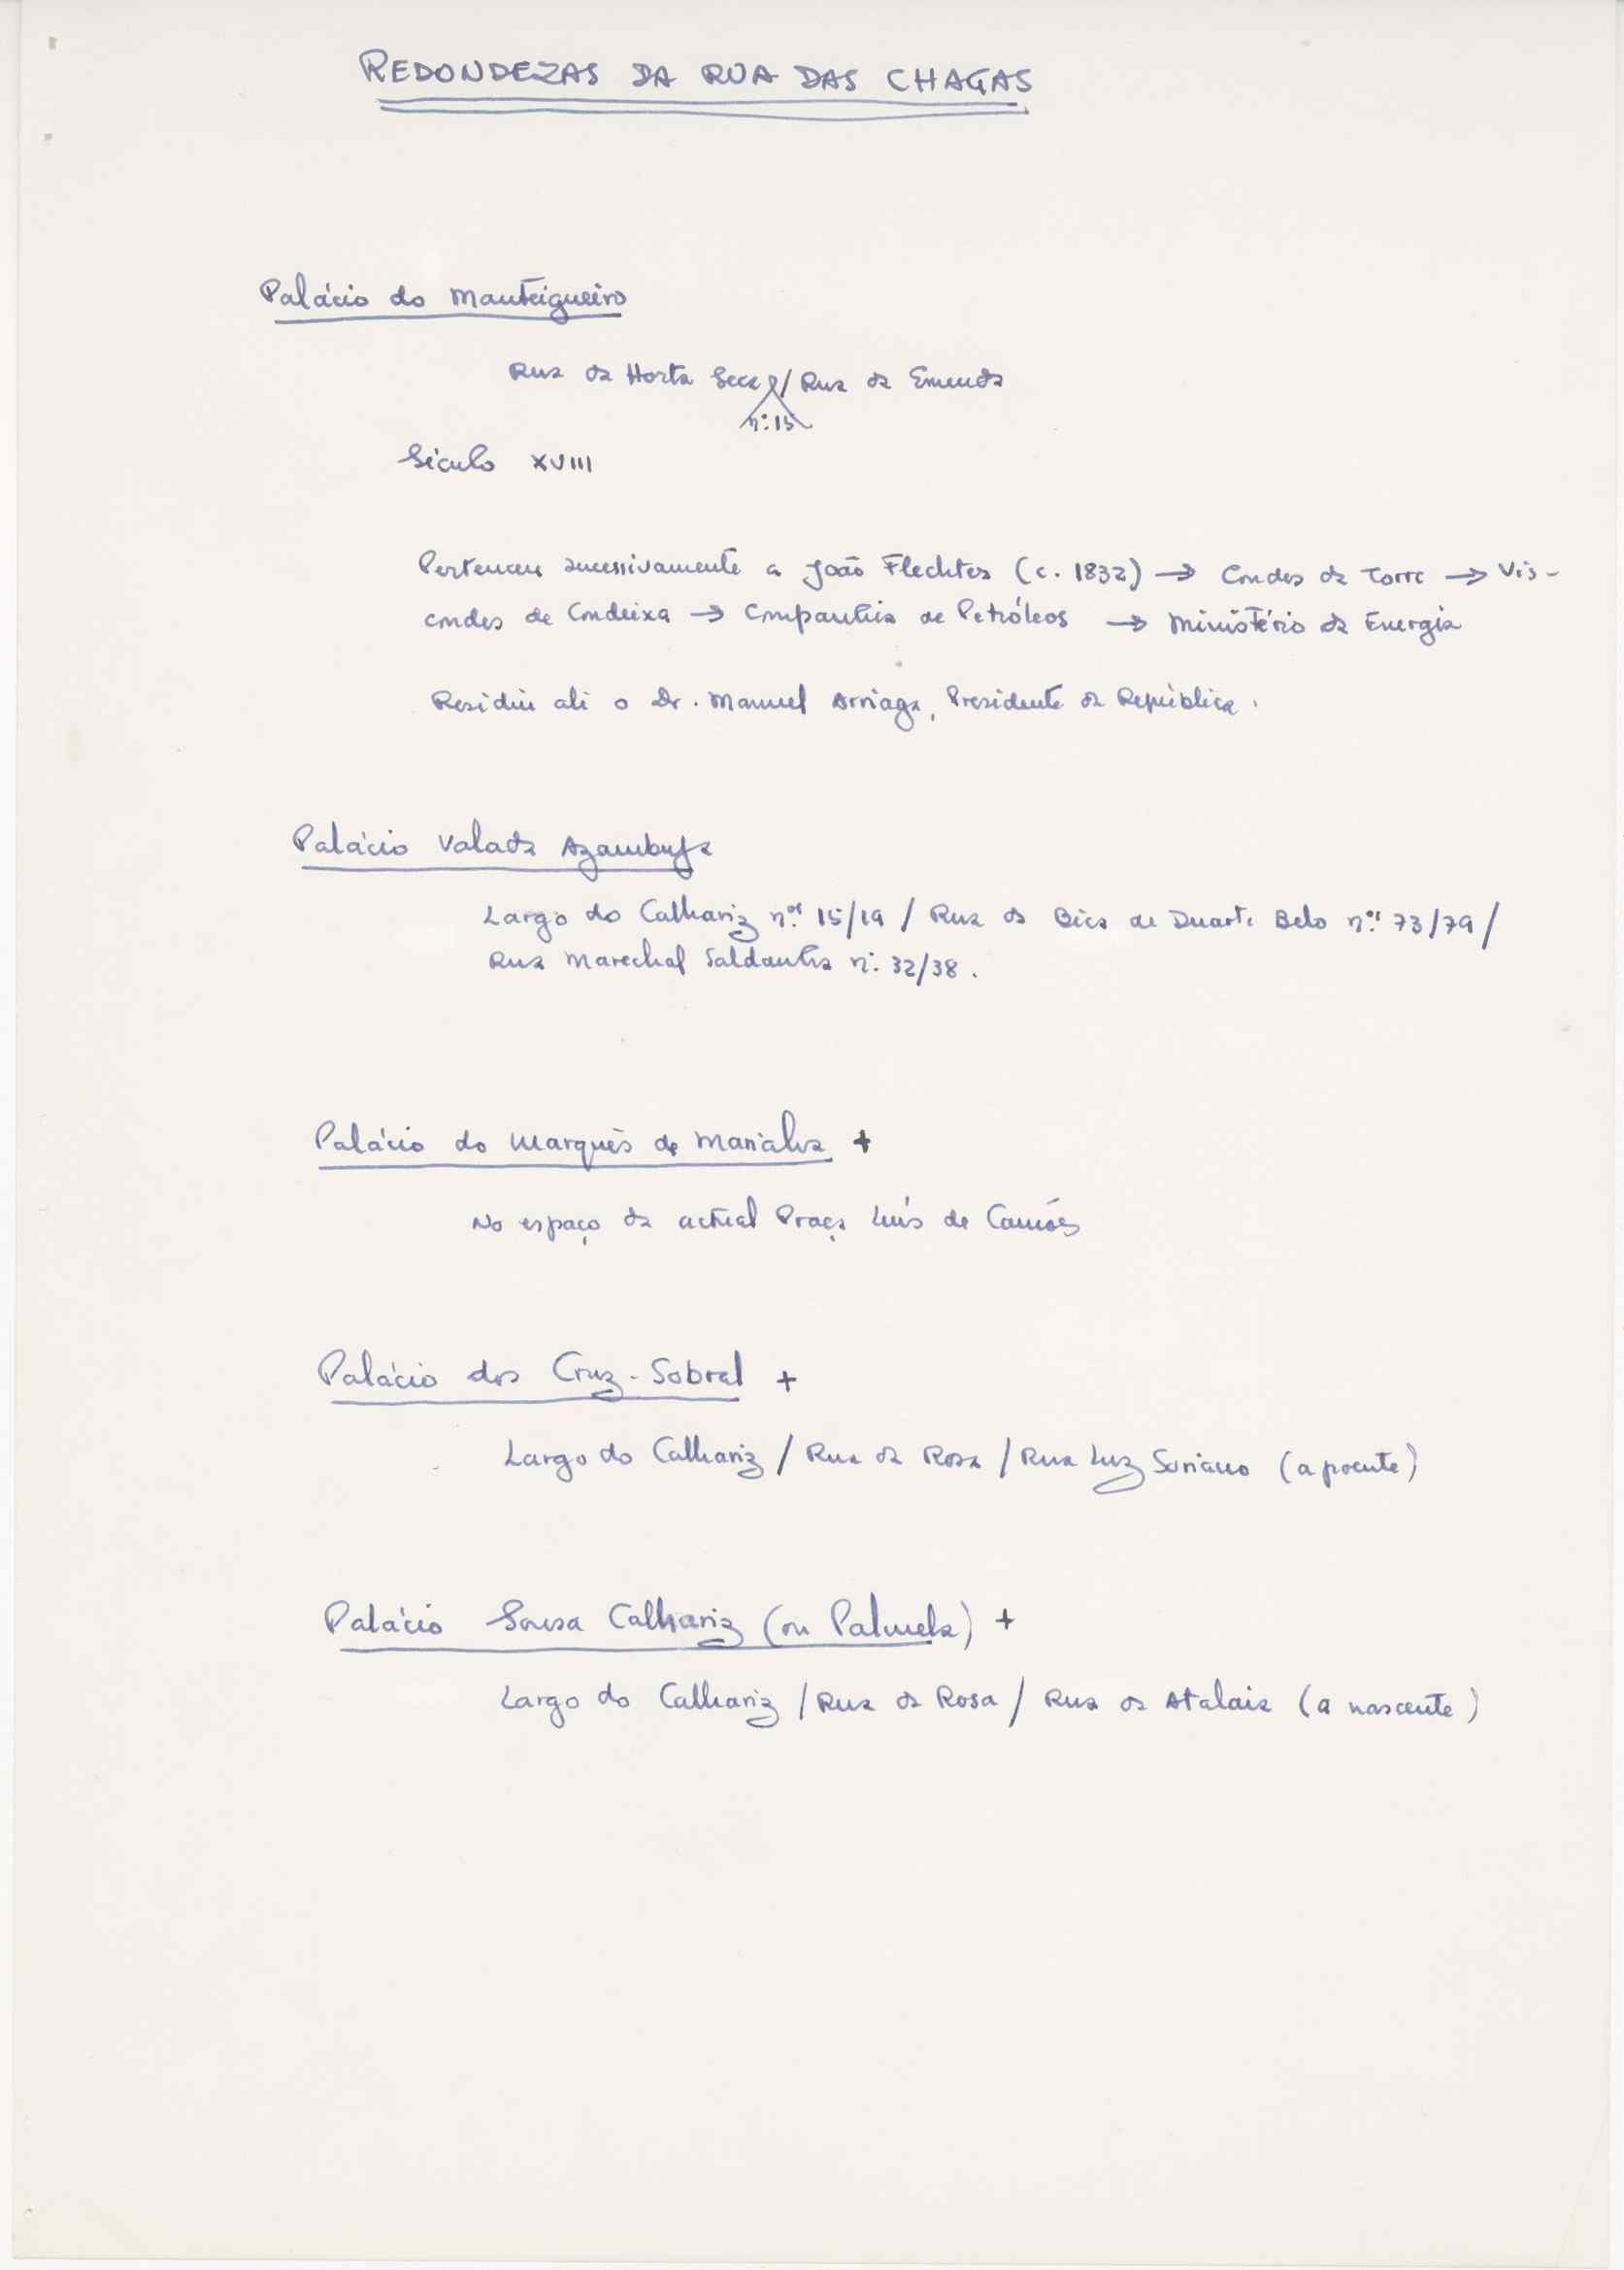 REDONDEZAS DA RUA DAS CHAGAS
Palácio do Manteigueiro
Rua da Horta Seca / Rua da Emenda
nº 15
Século XVIII
Pertenceu sucessivamente a João Flechter (c. 1832) → Condes da Torre → Vis-
condes de Condeixa → Companhia de Petróleos → Ministério da Energia
Residiu ali o Dr. Manuel Arriaga, Presidente da República.
Palácio Valada Azambuja
Largo do Calhariz nos 15/19 / Rua da Bica de Duarte Belo nos 73/79 /
Rua Marechal Saldanha nº 32/38.
Palácio do Marquês de Marialva +
No espaço da actual Praça Luís de Camões
Palácio dos Cruz-Sobral +
Largo do Calhariz / Rua da Rosa / Rua Luz Soriano (a poente)
Palácio Sousa Calhariz (ou Palmela) +
Largo do Calhariz / Rua da Rosa / Rua da Atalaia (a nascente)